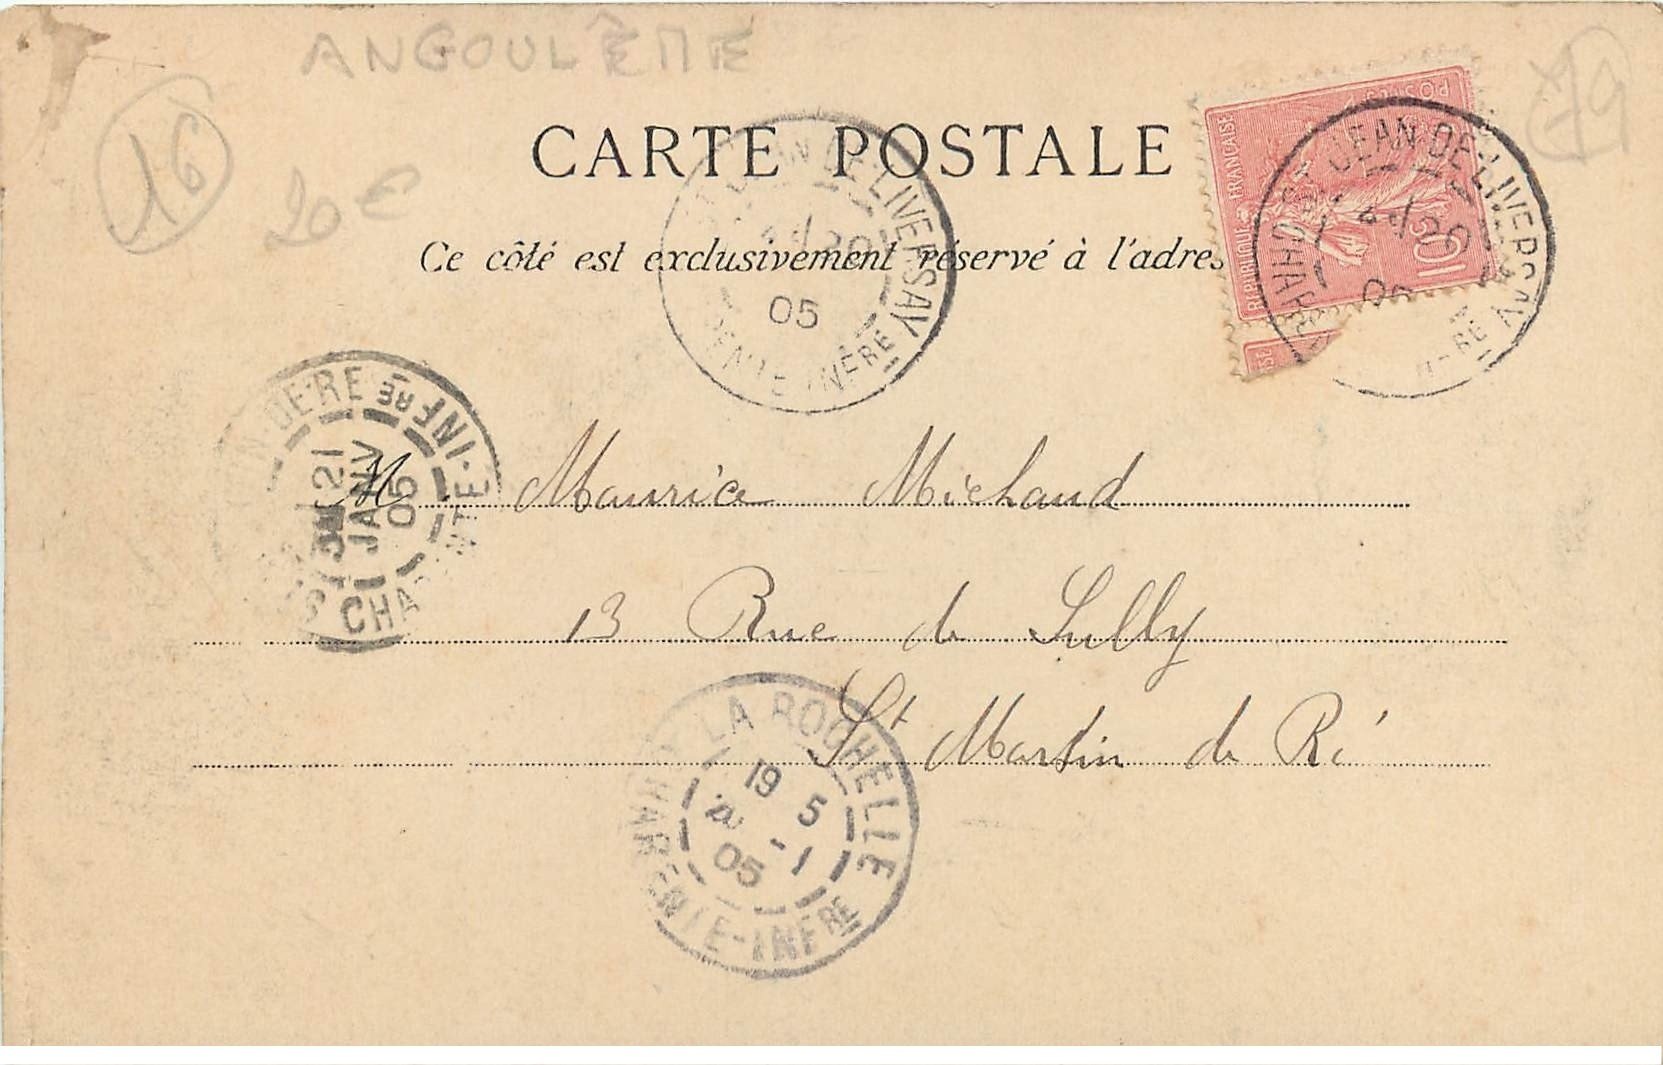 ANGOULÊME
16
20€
CARTE POSTALE
Ce côté est exclusivement réservé à l'adres
RÉPUBLIQUE FRANÇAISE
POSTES
10
ST JEAN-DE-LIVERSAY
20
05
INFRE
JEAN-DE-LIVERSAY
20
05
N-DE-RE
CHA NTE-INFRE
21
JANV
05
M Maurice Michaud
13 Rue de Sully
St Martin de Ré
LA ROCHELLE
CHARENTE-INFRE
19 5
20 -1
05